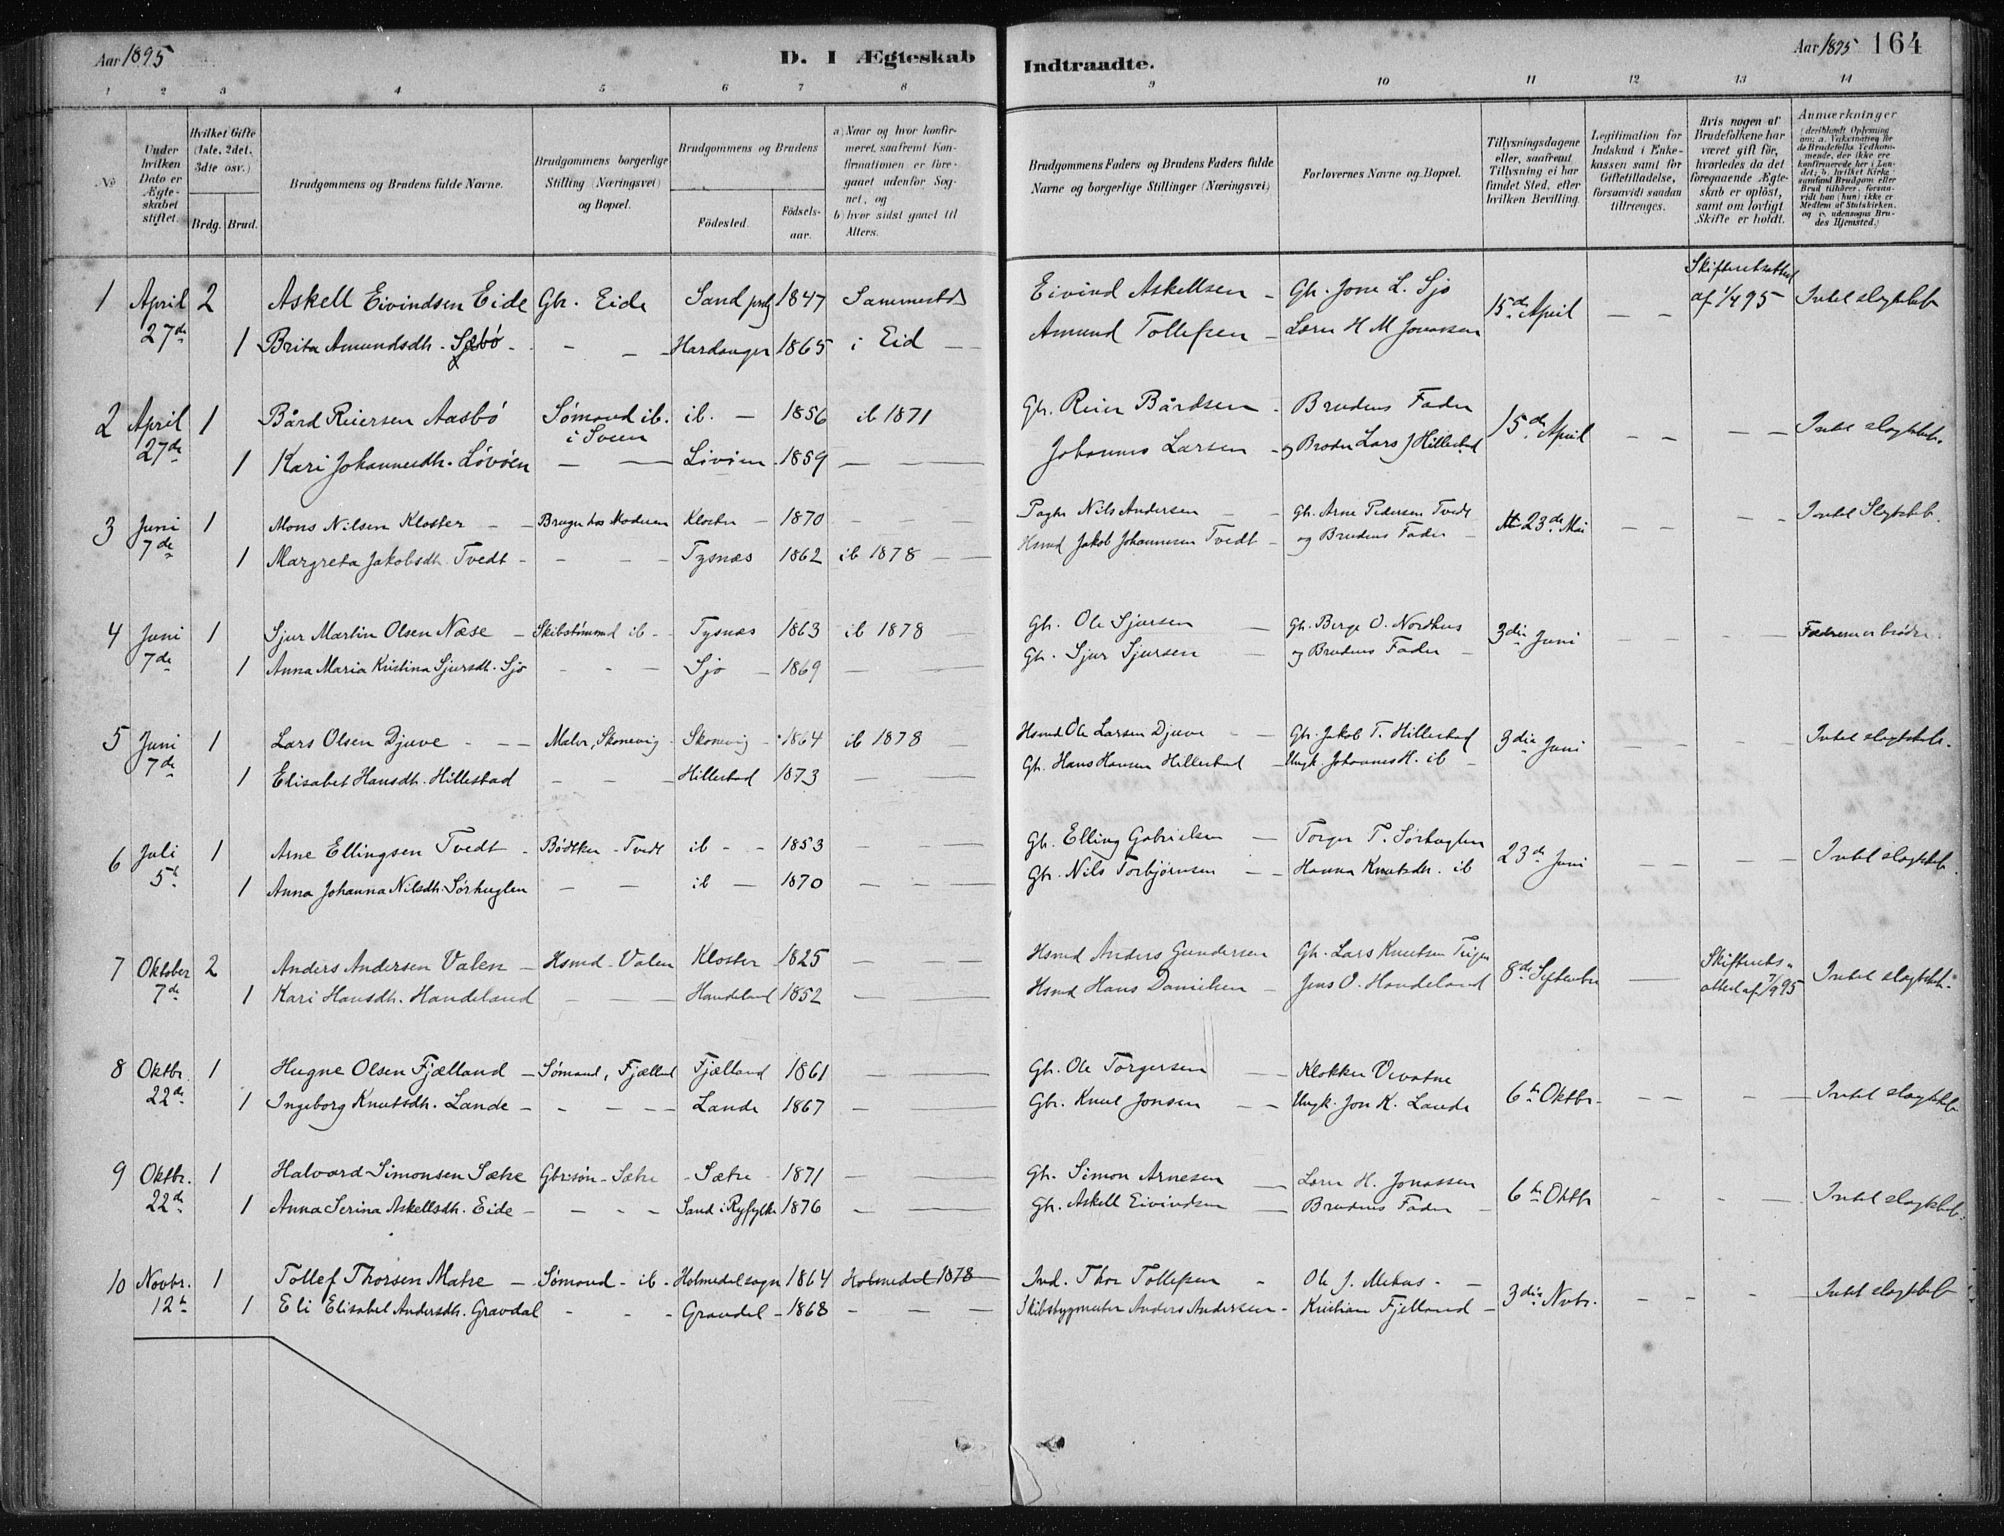 Aar 1895
D. I Ægteskab
Indtraadte.
Aar 1895 164
1 2 3 4 5 6 7 8 9 10 11 12 13 14
No
Under hvilken Dato er Ægteskabet stiftet.
Hvilket Gifte (1ste, 2det, 3dte osv.)
Brdg. Brud.
Brudgommens og Brudens fulde Navne.
Brudgommens borgerlige Stilling (Næringsvei) og Bopæl.
Brudgommens og Brudens
Fødested. Fødsels-aar.
a) Naar og hvor konfirmeret, saafremt Konfirmationen er foregaaet udenfor Sognet, og
b) hvor sidst gaaet til Alters.
Brudgommens Faders og Brudens Faders fulde Navne og borgerlige Stillinger (Næringsvei)
Forlovernes Navne og Bopæl.
Tillysningsdagene eller, saafremt Tillysning ei har fundet Sted, efter hvilken Bevilling.
Legitimation for Indskud i Enkekassen samt for Giftetilladelse, forsaavidt saadan tiltrænges.
Hvis nogen af Brudefolkene har været gift før, hvorledes da det foregaaende Ægteskab er opløst, samt om lovligt Skifte er holdt.
Anmærkninger
1 April 2 Askell Eivindsen Eide Gbr. Eide Sand prgj 1847 Sammesteds Eivind Askellsen - Gbr. Jone L. Sjo 15de April - - Skifteretsattest af 1/4 95 Intet slegtskb
27de 1 Brita Amundsdh. Sæbø - - - Hardanger 1865 i Eid - - Amund Tollefsen - Lærer H M Jonassen
2 April 1 Bård Reiersen Aasbø Sømand ib. i Sveen ib. - 1856 ib 1871 Gbr. Reier Bårdsen - Brudens Fader 15de April - - - - Intet slegtskb.
27de 1 Kari Johannesdh. Løvøen - - Løvøen 1859 - - Johannes Larsen - og Broder Lars J Hillestad
3 Juni 1 Mons Nilsen Kloster - - Bruger hos Moderen Kloster - 1870 - - - Nils Andersen - - Gbr. Arne Pedersen Tvedt 23de Mai - - - - Intet Slegtskb.
7de 1 Margreta Jakobsdh. Tvedt - - - - Tysnæs 1862 ib 1878 - - Hsmd Jakob Johannesen Tvedt - og Brudens Fader -
4 Juni 1 Sjur Martin Olsen Næse - Skibstømmd ib - Tysnæs 1863 ib 1878 - Gbr. Ole Sjursen - Gbr. Berge O. Nordhus 3die Juni - - - - Fædrene er brødre.
7de 1 Anna Maria Kristina Sjursdh. Sjo - - - Sjo - 1869 - - Gbr. Sjur Sjursen - og Brudens Fader -
5 Juni 1 Lars Olsen Djuve - - - Maler, Skonevig - Skonevig - 1864 ib 1878 - Hsmd Ole Larsen Djuve - - Gbr. Jakob T. Hillestad 3die Juni - - - - Intet slegtskb.
7de 1 Elisabet Hansdh. Hillestad - - - Hillestad - 1873 - - - Gbr. Hans Hansen Hillestad - Ungk. Johannes H. ib -
6 Juli 1 Arne Ellingsen Tvedt - Bødtker - Tvedt ib - - 1853 - - - Gbr. Elling Gabrielsen - Torger T. Sørhuglen 23de Juni - - - - Intet slegtskb.
5te 1 Anna Johanna Nilsdh. Sørhuglen - - - ib - 1870 - - - Gbr. Nils Torbjørnsen - - Hanna Knutsdh. ib
7 Oktober 2 Anders Andersen Valen - Hsmd - Valen Kloster - 1825 - - - Hsmd Anders Gundersen Gbr. Lars Knutsen 8de Septembr - Skifterets-attest af 7/9 95 Intet slegtskb.
7de 1 Kari Hansdh. Handeland - - Handeland 1852 - - - Hsmd Hans Danielsen - Jens O. Handeland
8 Oktbr. 1 Hugne Olsen Fjælland - Sømand, Fjælland Fjælland 1861 - - - Gbr. Ole Torgersen - Klokker Vevatne 6te Oktbr. - - - - Intet slegtskb.
22de 1 Ingeborg Knutsdh. Lande - - - - - Lande - 1867 - - Gbr. Knut Jonsen - - Ungk. Jon K. Lande
9 Oktbr. 1 Halvard Simonsen Sætre Gbrsøn - Sætre - Sætre - 1871 - - - Gbr. Simon Arnesen - Lærer H. Jonassen 6te Oktbr - - - - Intet slegtskb.
22de 1 Anna Serina Askellsdh. Eide - - - - Sand i Ryfylke 1876 - - - Gbr. Askell Eivindsen - Brudens Fader -
10 Novbr. 1 Tollef Thorsen Matre - Sømand - ib - Holmedal sogn 1864 Holmedal 1878 Ind. Thor Tollefsen - Ole J. Mehus - - 3die Novbr. - - - - Intet slegtskb
12te 1 Eli Elisabet Andersdh. Gravdal - - - Gravdal - 1868 - - - Skibsbygmester Anders Andersen - Kristian Fjelland -